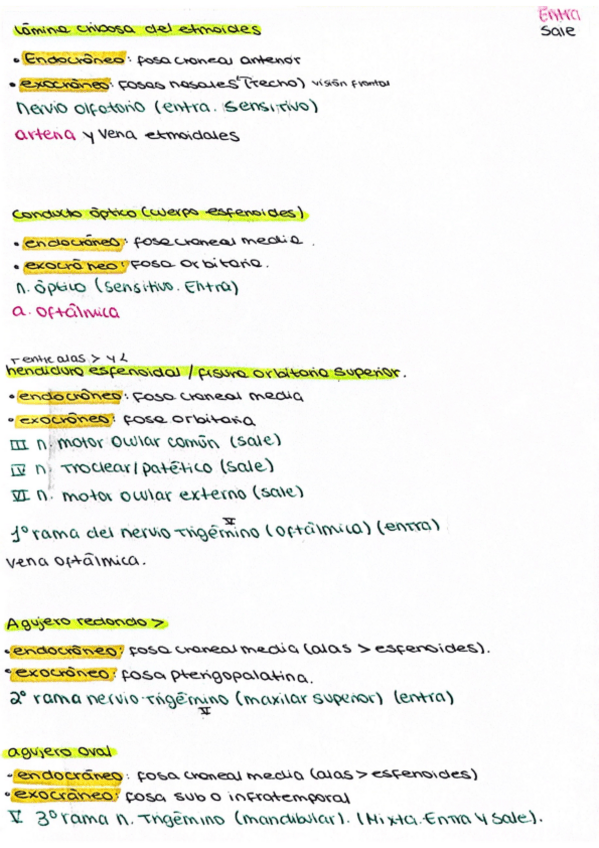 Entra
Sale
Lámina cribosa del etmoides
• Endocráneo: fosa craneal anterior
• exocráneo: fosas nasales (techo) visión frontal
nervio olfatorio (entra. Sensitivo)
arteria y vena etmoidales
Conducto óptico (cuerpo esfenoides)
• endocráneo: fosa craneal media.
• exocráneo: fosa orbitaria.
n. óptico (sensitivo. Entra)
a. oftálmica
entre alas > y <
hendidura esfenoidal / fisura orbitaria superior.
• endocráneo: fosa craneal media
• exocráneo: fosa orbitaria
III n. motor ocular común (sale)
IV n. troclear/patético (sale)
VI n. motor ocular externo (sale)
1º rama del nervio trigémino V (oftálmica) (entra)
vena oftálmica.
Agujero redondo >
• endocráneo: fosa craneal media (alas > esfenoides).
• exocráneo: fosa pterigopalatina.
2º rama nervio trigémino V (maxilar superior) (entra)
agujero oval
• endocráneo: fosa craneal media (alas > esfenoides)
• exocráneo: fosa sub o infratemporal
V 3º rama n. Trigémino (mandibular). (Mixta. Entra y Sale).